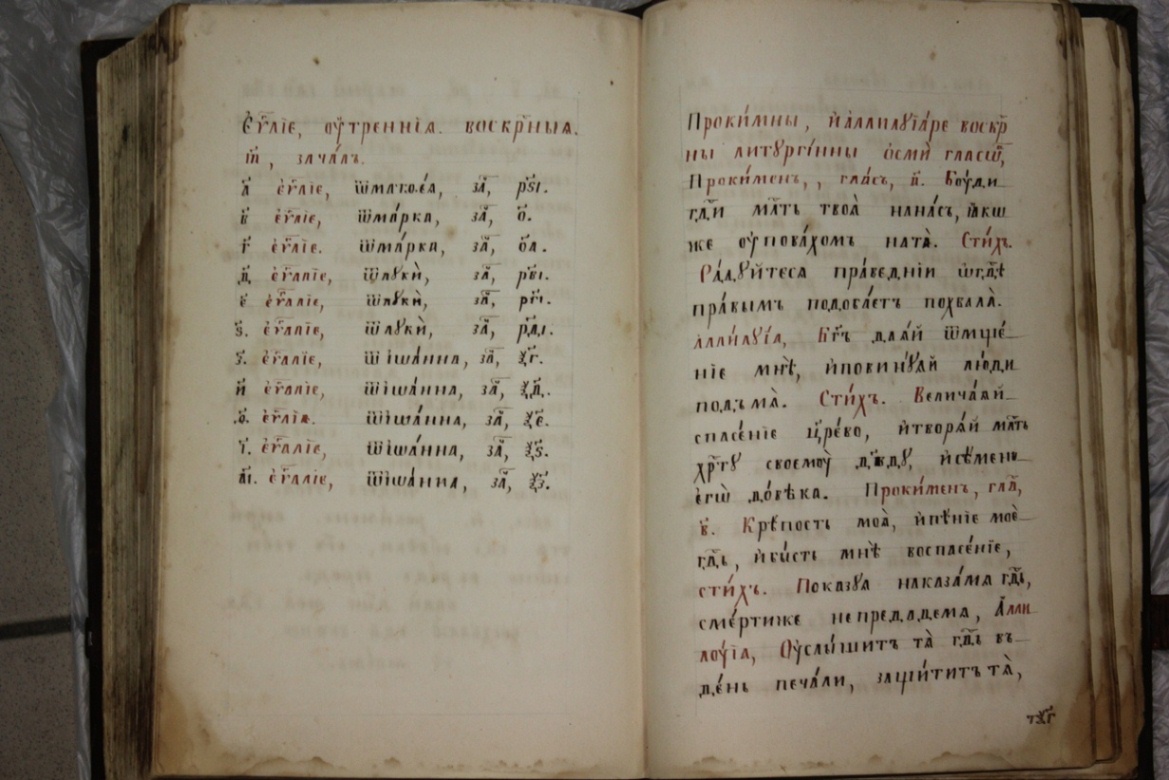 Єѵⷢ҇лїе, ᲂу҆́треннїѧ. воскрⷭ҇ныѧ.
і҆ⷨ, зача́лъ.
а҃ є҆ѵⷢ҇лїе, ѿмаѳеа, за҄, рѕ҃і.
в҃ є҆ѵⷢ҇лїе, ѿма́рка, за҄, о҃.
г҃ є҆ѵⷢ҇лїе. ѿма́рка, за҄, о҃а.
д҃ є҆ѵⷢ҇лїе, ѿлꙋкѝ, за҄, рв҃і.
є҃ є҆ѵⷢ҇лїе, ѿлꙋкѝ, за҄, рг҃і.
ѕ҃. є҆ѵⷢ҇лїе, ѿлꙋкѝ, за҄, рд҃і.
з҃. є҆ѵⷢ҇лїе, ѿі҆ѡа́нна, за҄, ѯ҃г.
и҃ є҆ѵⷢ҇лїе, ѿі҆ѡа́нна, за҄, ѯ҃д.
ѳ҃. є҆ѵⷢ҇лїе. ѿі҆ѡа́нна, за҄, ѯ҃є.
і҃. є҆ѵⷢ҇лїе, ѿі҆ѡа́нна, за҄, ѯ҃ѕ.
а҃і. є҆ѵⷢ҇лїе, ѿі҆ѡа́нна, за҄, ѯ҃з.
Проки́мны, и҆а҆ллилꙋїа́ре воскрⷭ҇
ны литꙋргі́йны ѻ҆смѝ гласѡ́въ,
Проки́менъ,, гла́съ, а҃. Бꙋ́ди
гдⷭ҇и млⷭ҇ть твоѧ̀ нана́съ, ꙗ҆́кѡ
же ᲂу҆пова́хомъ натѧ̀. Сти́хъ.
Ра́дꙋйтесѧ пра́веднїи ѡ҆гдⷭ҇ѣ
пра́вымъ подоба́етъ похвала̀.
а҆ллилꙋ́їа, Бг҃ъ даѧ́й ѿмще́
нїе мнѣ̀, и҆повинꙋ́ѧй лю́ди
подъмѧ̀. Сти́хъ. Велича́ѧй
спасе́нїе цр҃е́во, и҆творѧ́й млⷭ҇ть
хрⷭ҇тꙋ̀ своемꙋ̀ дв҃дꙋ, и҆сѣ́мени
є҆гѡ̀ до́вѣка. Проки́менъ, гла́,
в҃. Крѣ́пость моѧ̀, и҆пѣ́нїе моѐ
гдⷭ҇ь, и҆бы́сть мнѣ̀ воспасе́нїе,
сти́хъ. Показꙋѧ наказа́мѧ гдⷭ҇ь,
сме́ртиже непредадемѧ, А҆лли
лꙋ́їа, Оу҆слы́шитъ тѧ̀ гдⷭ҇ь въ
де́нь печа́ли, защи́титъ тѧ̀,
тѯ҃г